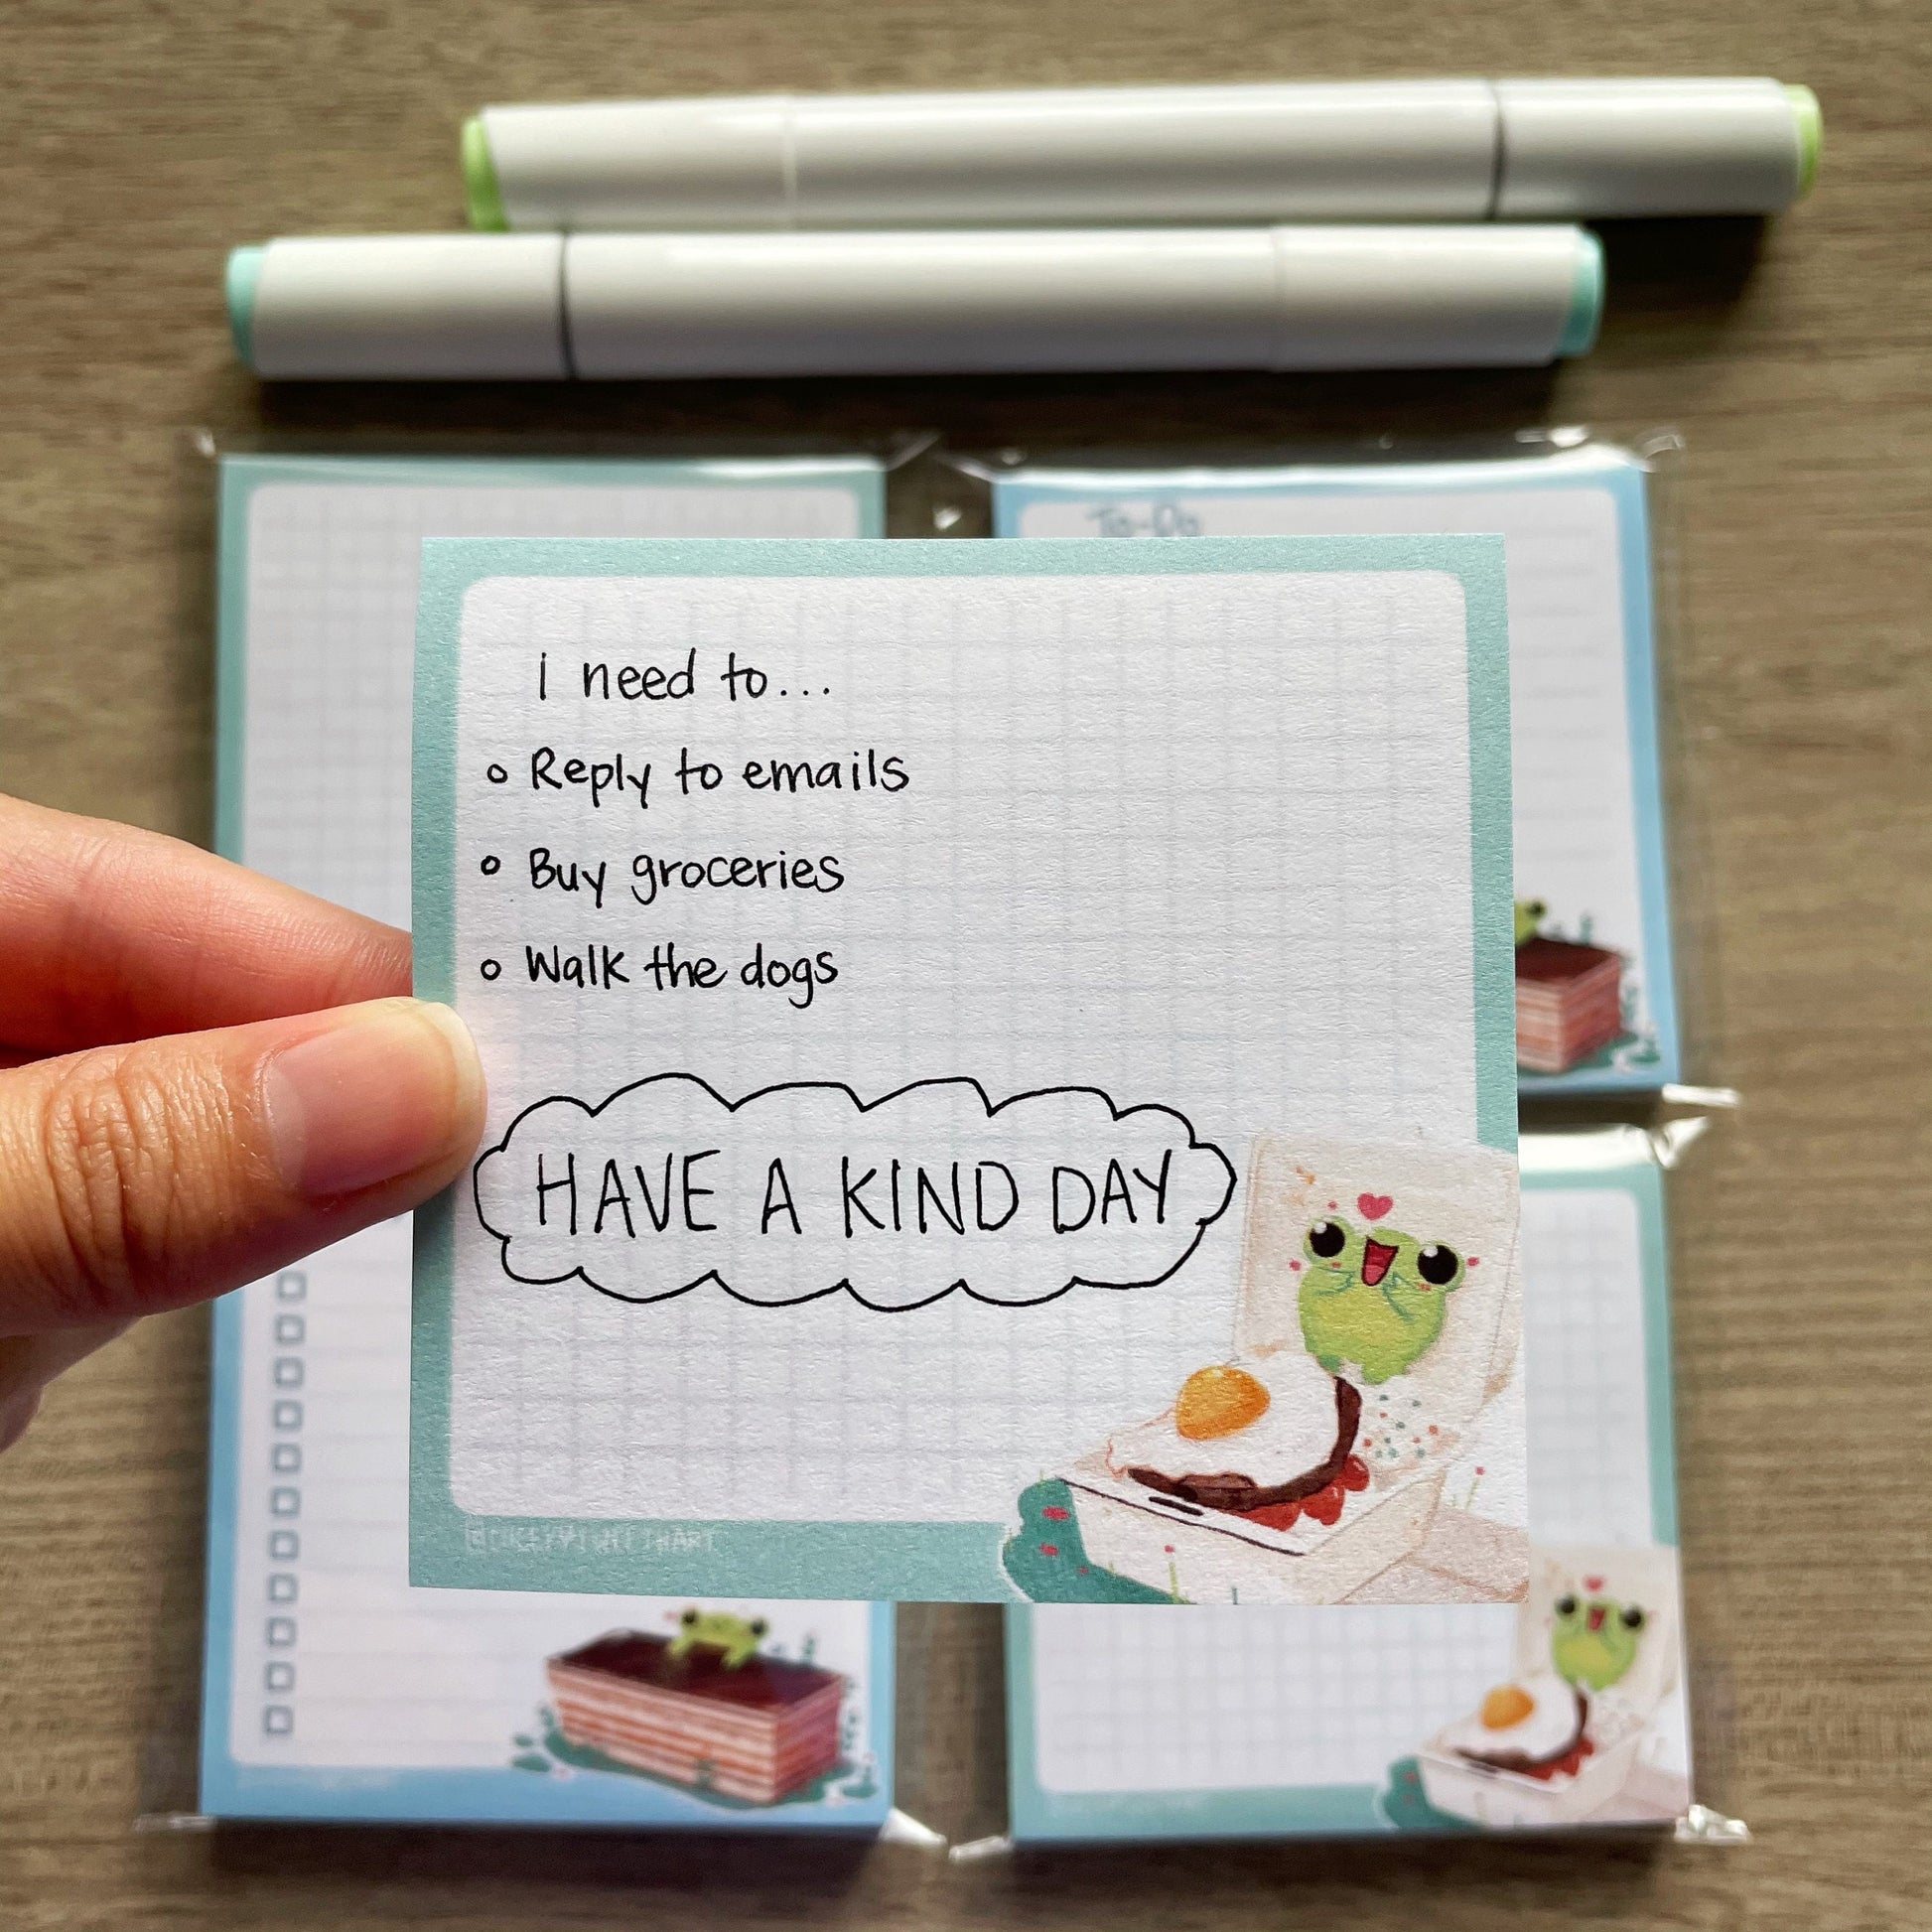 To-Do
i need to...
Reply to emails
Buy groceries
Walk the dogs
HAVE A KIND DAY